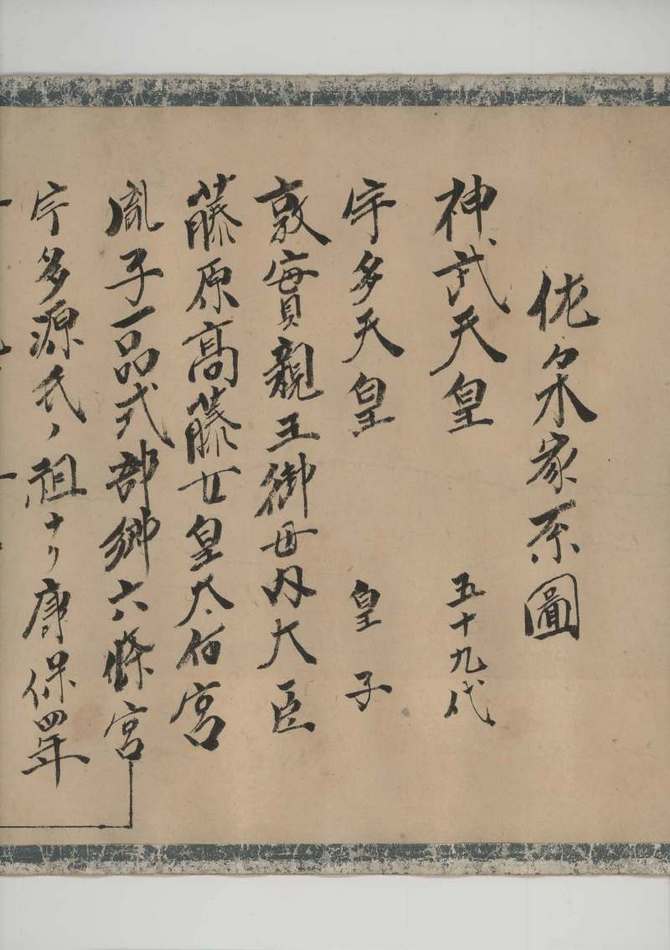 佐々木家系圖
神武天皇 五十九代
宇多天皇 皇子
敦實親王御母内大臣
藤原高藤女皇太后宮
胤子一品式部卿六條宮
宇多源氏ノ祖ナリ康保四年